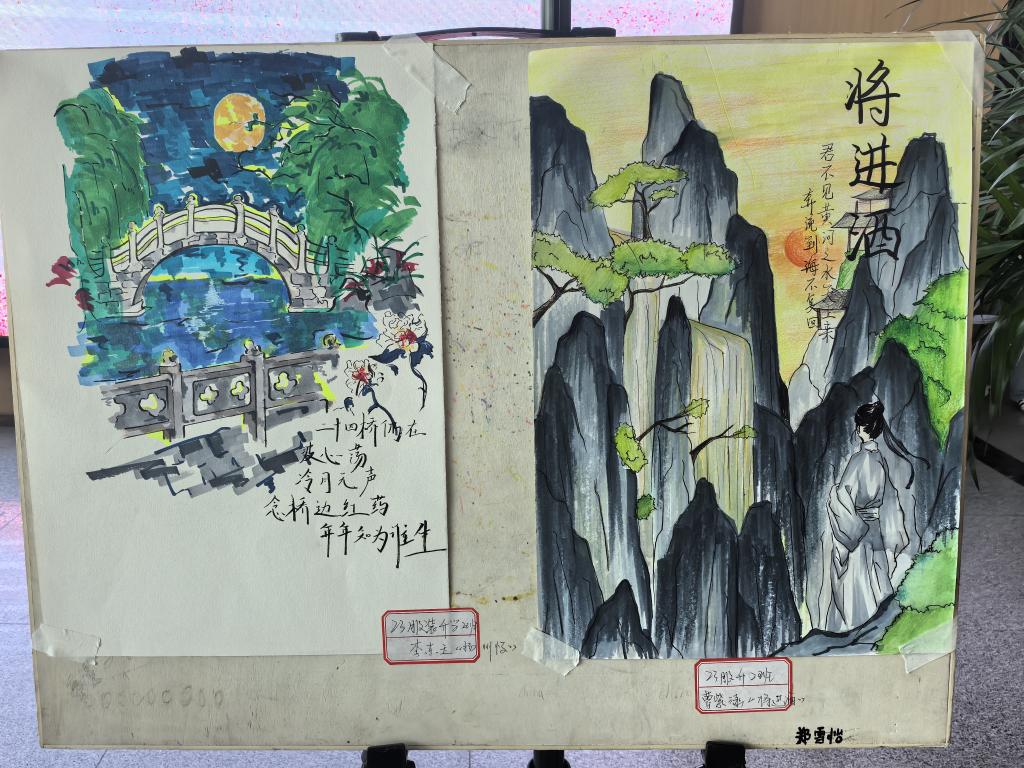 二十四桥仍在
波心荡
冷月无声
念桥边红药
年年知为谁生
将进酒
君不见黄河之水天上来
奔流到海不复回
23服装升学2班
23服升2班
郑雪怡